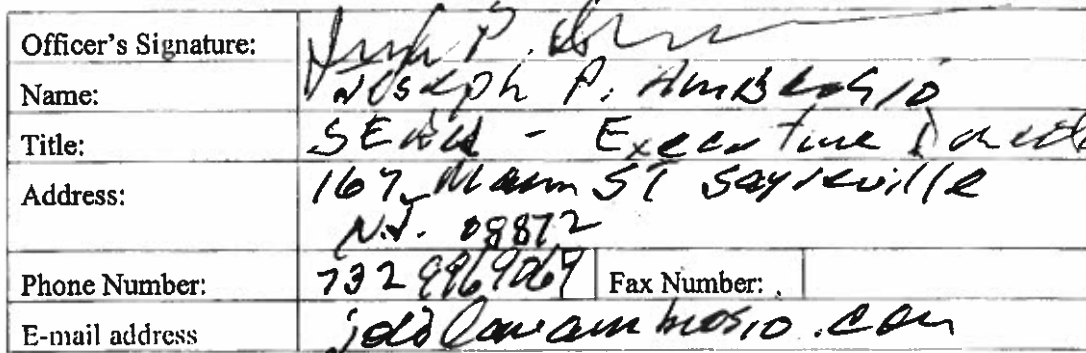 Officer's Signature:
Name: Joseph P. Ambrosio
Title: SERA - Executive Director
Address: 167 Main ST Sayreville
N.J. 08872
Phone Number: 732 9969069 Fax Number:
E-mail address ambrosio.com